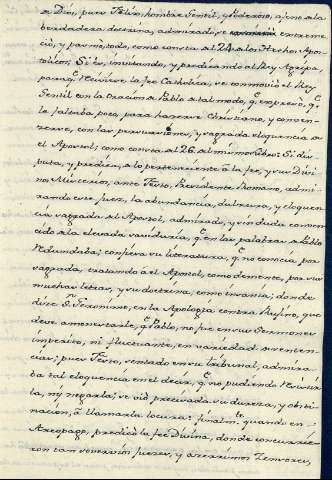 a Dios, pues Felix, hombre Gentil, y poderoso, ageno a la
verdadera doctrina, admirado, se extreme
ció, y pasmó todo, como consta al 24 de los Hechos Apos
tolicos. Si és, invitando, y predicando al Rey Agripa,
para q.e reciviese la fee Catholica, se conmovió el Rey
Gentil con la oracion de Pablo de tal modo, q.e expresó, q.e
le faltaba poco, para hacerse Christiano, y conven
zerse, con las persuasiones, y sagrada eloquencia de
el Apostol, como consta al 26. del mismo Libro: Si dis
puta, y predica, a lo perteneciente a la fee, y sus Divi
nos Misterios, ante Festo, Presidente Romano, admi
rando este juez, la abundancia, dulzura, y eloquen
cia sagrada del Apostol, admirado, y sin duda conven
cido a la elevada sabiduría, q.e en las palabras de Pablo
redundaba; confiesa su literatura, q.e no conocia, por
sagrada, tratando a el Apostol, como demente, por sus
muchas letras, y su doctrina, como insania; donde
dice S.n Geronimo, en la Apologia contra Rufino, que
debe amonestarle, q.e Pablo, no fue en sus Sermones
imperito, ni fluctuante, en variedad de senten
cias; pues Festo, sentado en su tribunal, admira
ba tal eloquencia en el decir, q.e no pudiendo resistir
la, ni negarla, se vió precisada su dureza, y obsti
nacion, a llamarla locura: finalm.te quando en
Areopago, predicó la fee Divina, donde concurrie
ron tan soberbios jueces, y asperrimos Zensores,